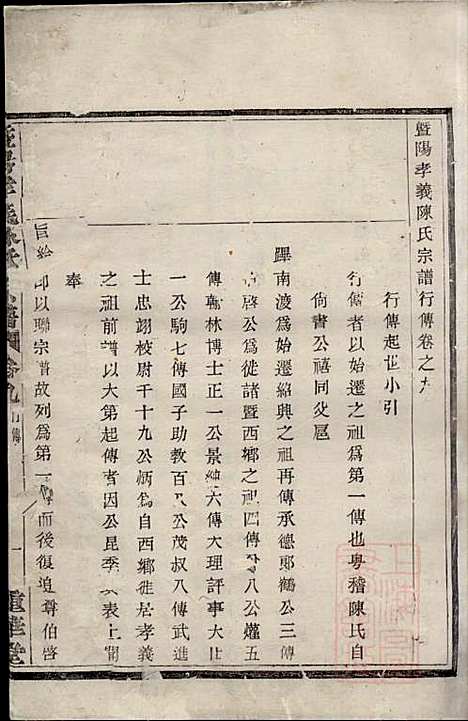 暨陽孝義陳氏宗譜行傳卷之九
行傳起世小引
行傳者以始遷之祖爲第一傳也粤稽陳氏自
尙書公禧同父扈
蹕南渡爲始遷紹興之祖再傳承德郞鶴公三傳
啓公爲徙諸暨西鄉之祖四傳 八公爟五
傳翰林博士正一公景純六傳大理評事大
一公駒七傳國子助教百 公茂叔八傳武進
士忠翊校尉千十九公炳爲自西鄉徙居孝義
之祖前譜以大第起傳者因公昆季 表上聞
奉
旨給 印以聯宗譜故列爲第一傳而後復追尊伯啓
暨陽孝義陳氏宗譜 卷九 行傳 一 重華堂